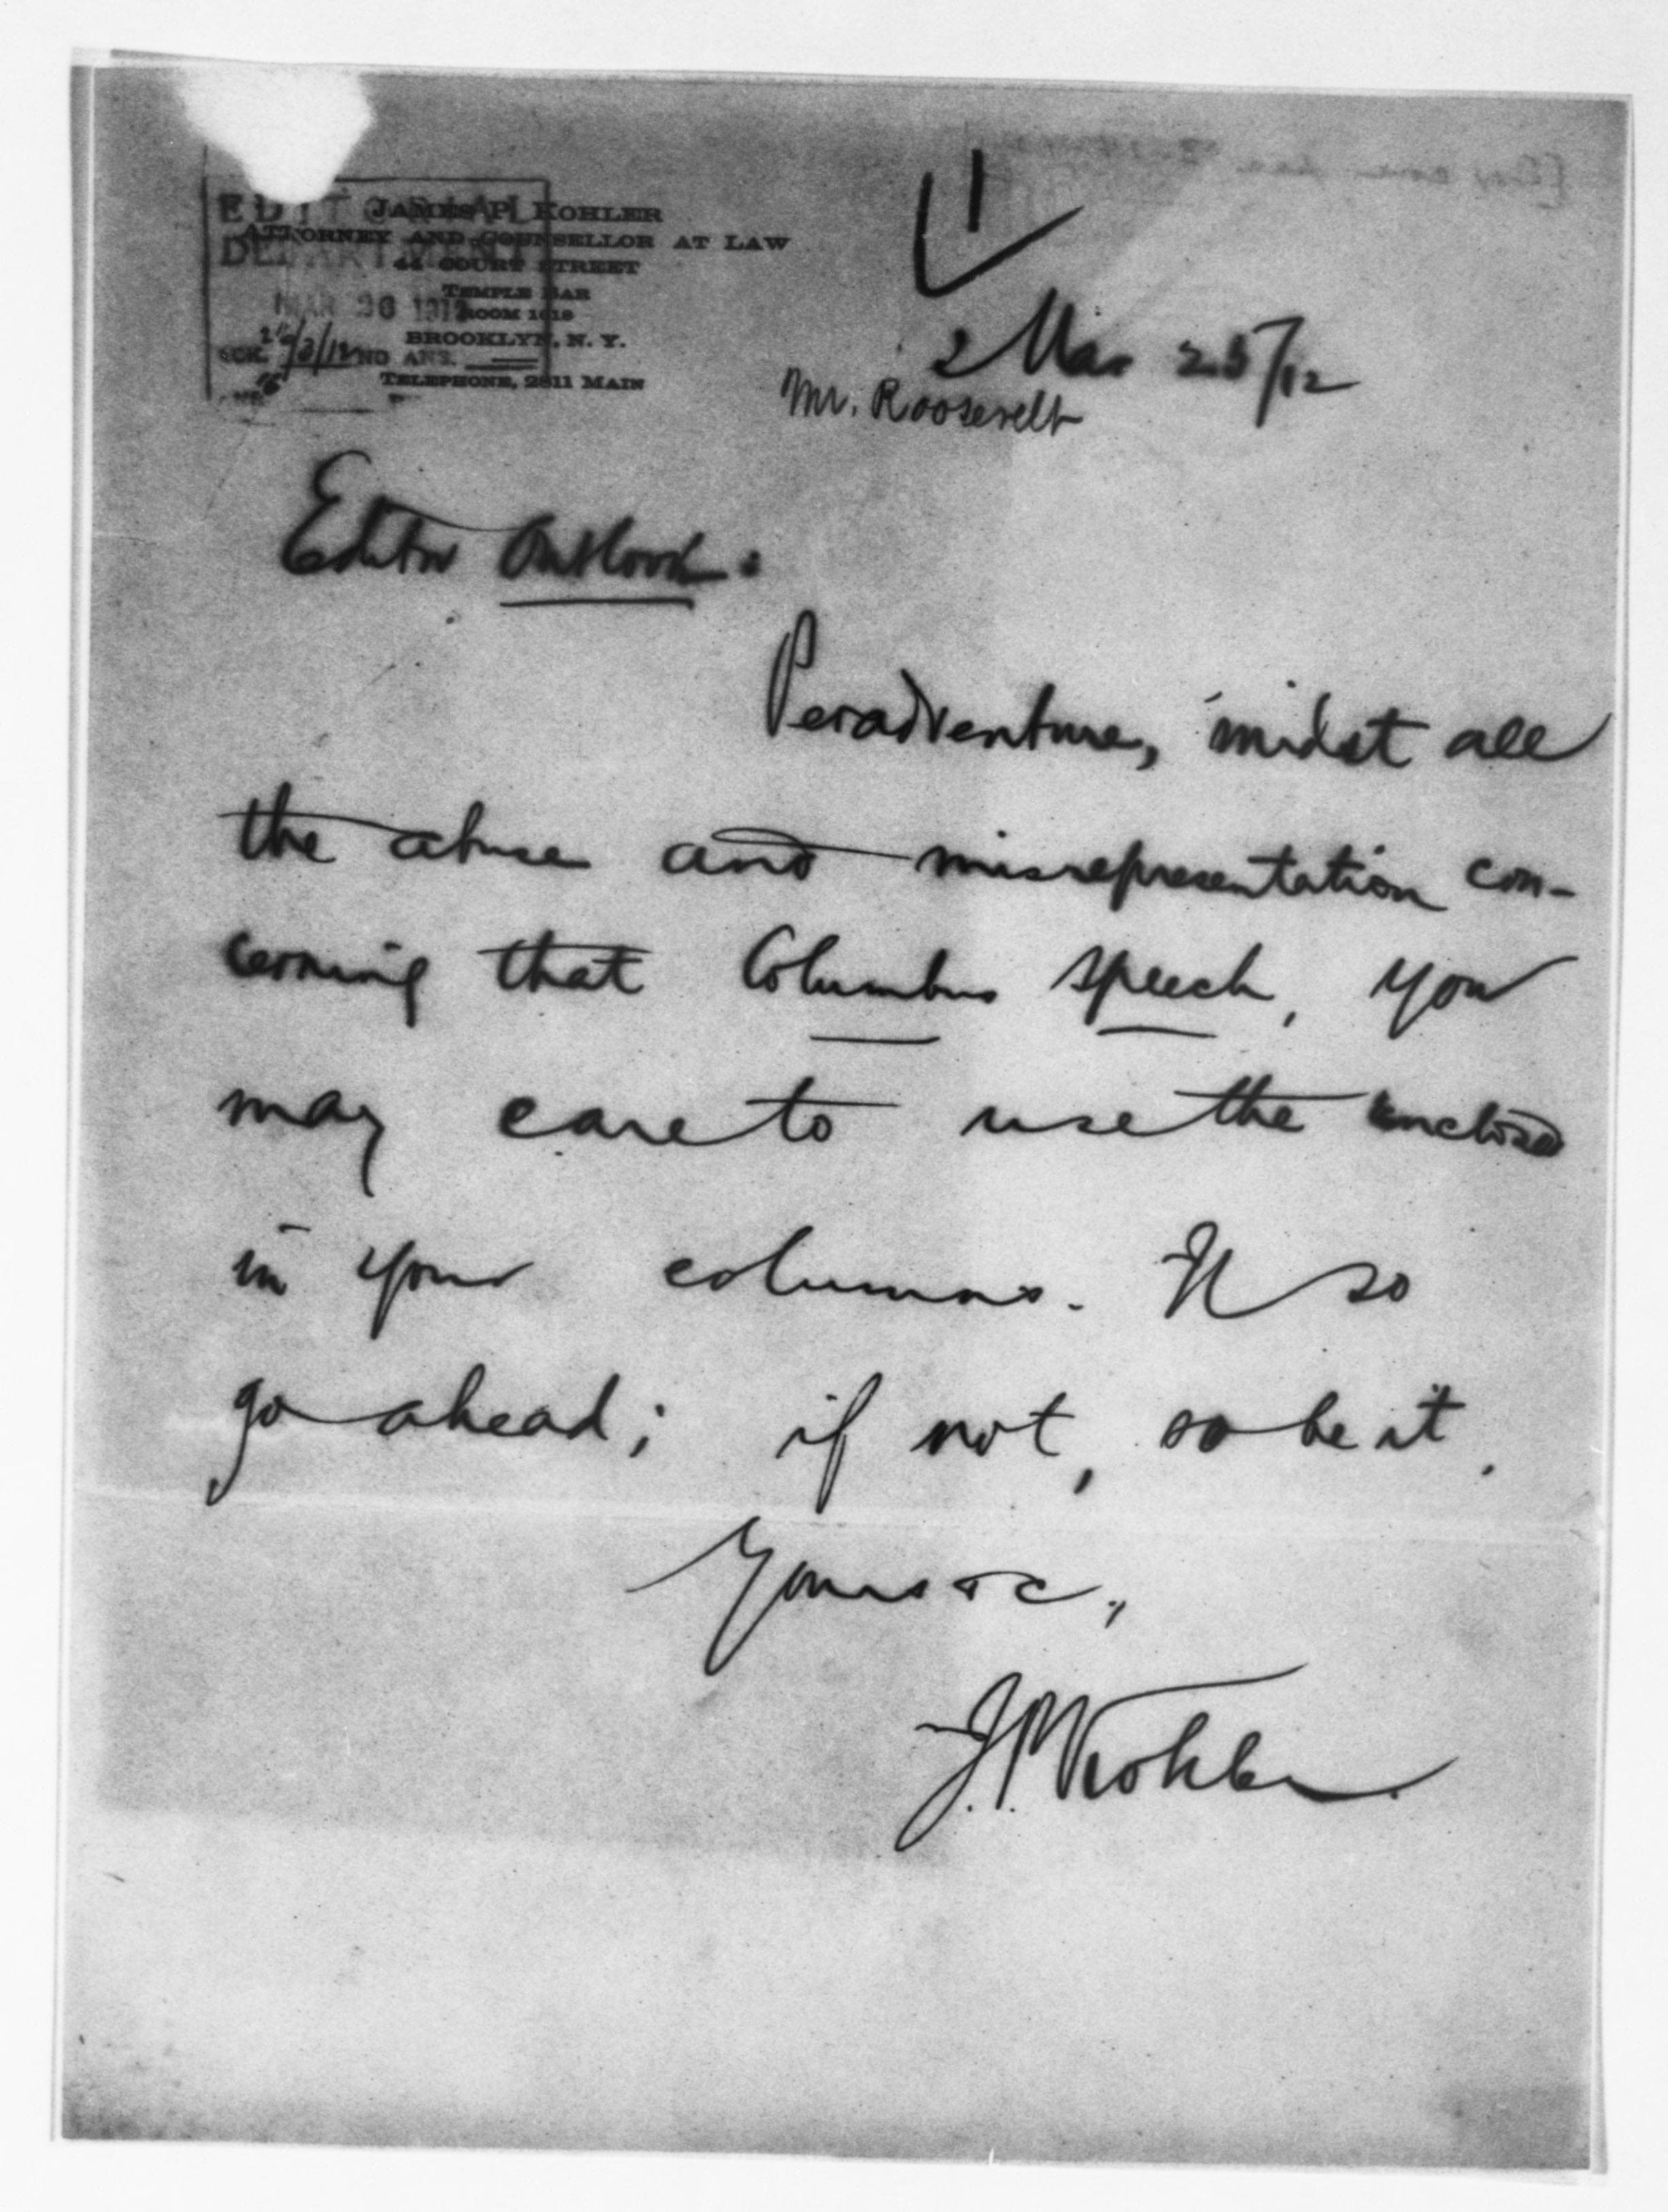 JAMES P. KOHLER
ATTORNEY AND COUNSELLOR AT LAW
44 COURT STREET
TEMPLE BAR
ROOM 1018
BROOKLYN, N. Y.
TELEPHONE, 2811 MAIN
EDITORIAL
DEPARTMENT
MAR 26 1912
ACK. NO ANS.
Mar 25/12
Mr. Roosevelt
Editor Outlook:
Peradventure, 'midst all
the abuse and misrepresentation con-
cerning that Columbus speech, you
may care to use the enclosed
in your columns. If so
go ahead; if not, so be it.
Yours &c.,
J.P. Kohler.